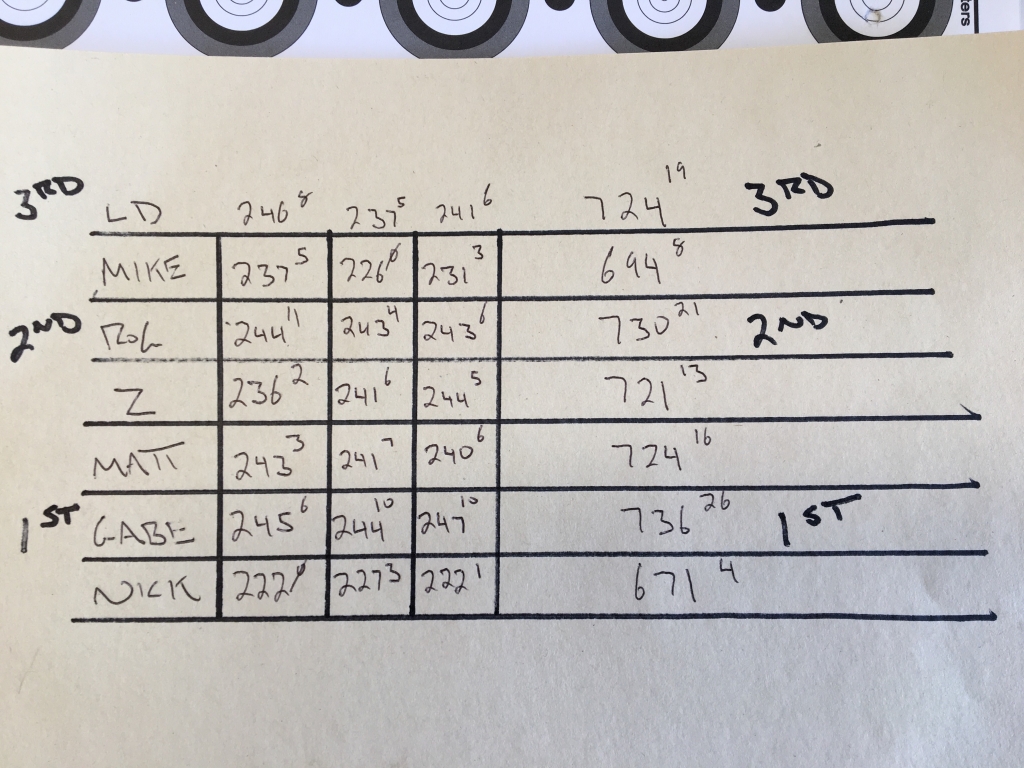 ters
3RD LD 246⁸ 237⁵ 241⁶ 724¹⁹ 3RD
MIKE 237⁵ 226⁰ 231³ 694⁸
2ND Rob 244¹¹ 243⁴ 243⁶ 730²¹ 2ND
Z 236² 241⁶ 244⁵ 721¹³
MATT 243³ 241⁷ 240⁶ 724¹⁶
1ST GABE 245⁶ 244¹⁰ 247¹⁰ 736²⁶ 1ST
NICK 222⁰ 227³ 222¹ 671⁴